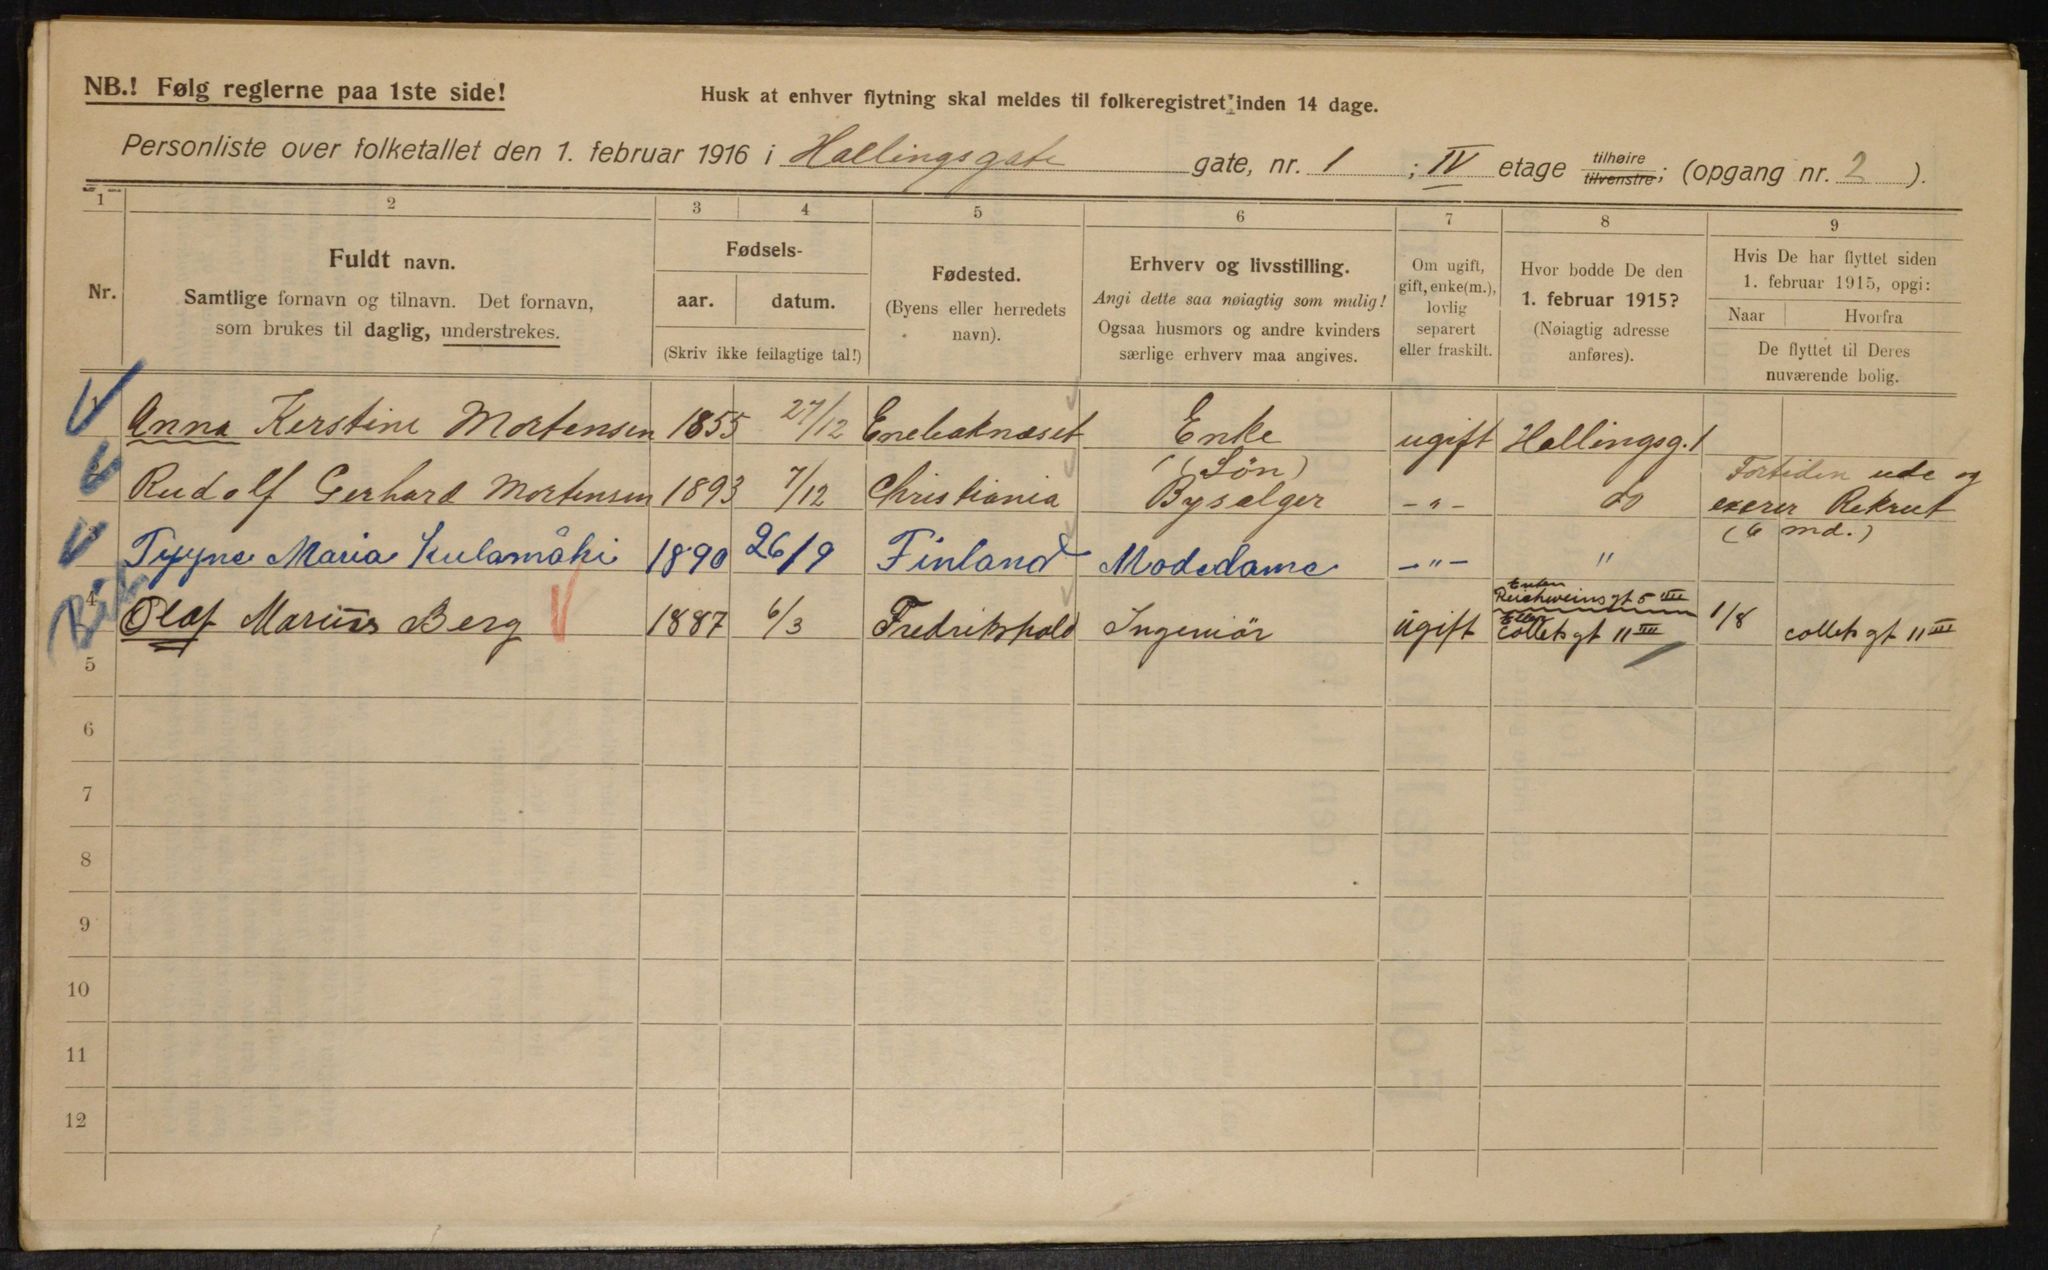 NB.! Følg reglerne paa 1ste side!
Husk at enhver flytning skal meldes til folkeregistret inden 14 dage.
Personliste over folketallet den 1. februar 1916 i Hallingsgate gate, nr. 1 ; IV etage tilhøire tilvenstre; (opgang nr. 2 ).
1 2 3 4 5 6 7 8 9
Nr.
Fuldt navn.
Samtlige fornavn og tilnavn. Det fornavn,
som brukes til daglig, understrekes.
Fødsels-
aar. datum.
(Skriv ikke feilagtige tal!)
Fødested.
(Byens eller herredets
navn).
Erhverv og livsstilling.
Angi dette saa nøiagtig som mulig!
Ogsaa husmors og andre kvinders
særlige erhverv maa angives.
Om ugift,
gift, enke(m.),
lovlig
separert
eller fraskilt.
Hvor bodde De den
1. februar 1915?
(Nøiagtig adresse
anføres).
Hvis De har flyttet siden
1. februar 1915, opgi:
Naar Hvorfra
De flyttet til Deres
nuværende bolig.
Anna Kerstine Mortensen 1855 27/12 Enebaknæset Enke ugift Hallingsg. 1
Rudolf Gerhard Mortensen 1893 7/12 Christiania (Søn) Bysælger -"- do Fortiden ude og
exerer Rekrut
(6 md.)
Tyyne Maria Kulamäki 1890 26/9 Finland Modedame -"- "
4 Olaf Marius Berg 1887 6/3 Fredrikshald Ingeniør ugift Enten Reichweinsgt 5 III
Eller Colletsgt 11 III 1/8 colletsgt 11 III
5
6
7
8
9
10
11
12